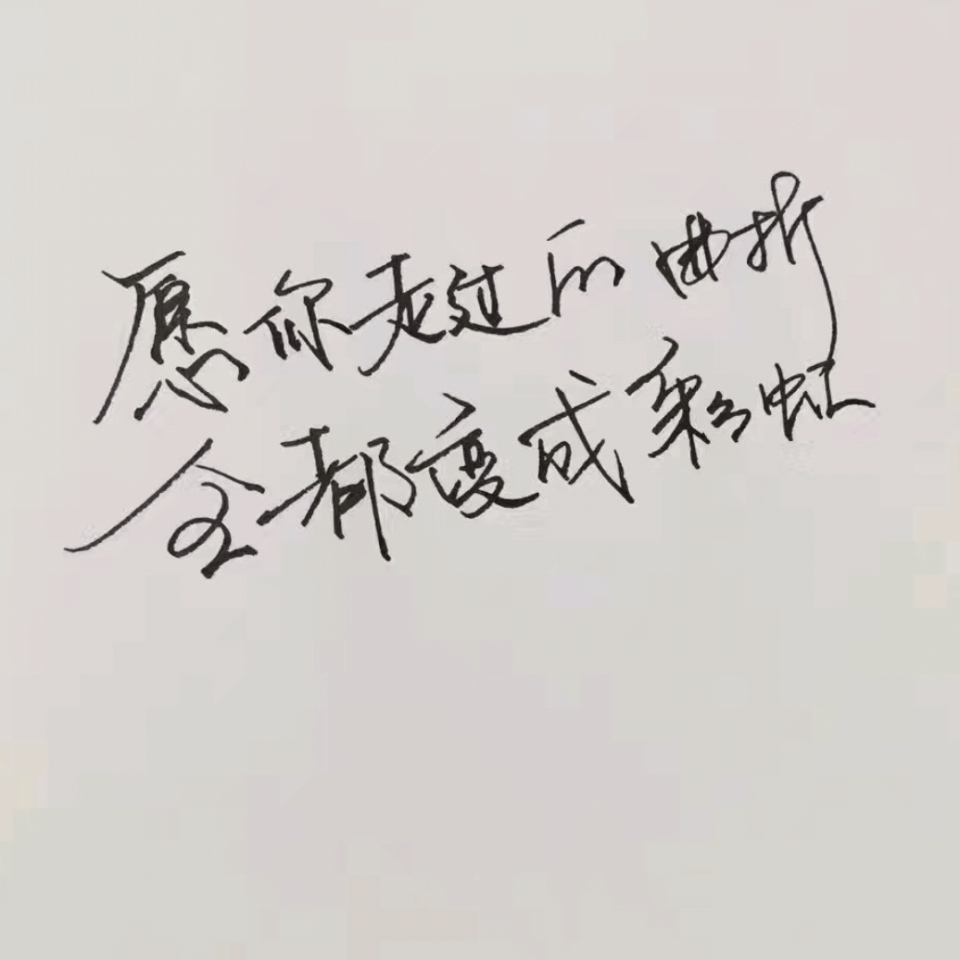 愿你走过的曲折
全都变成彩虹